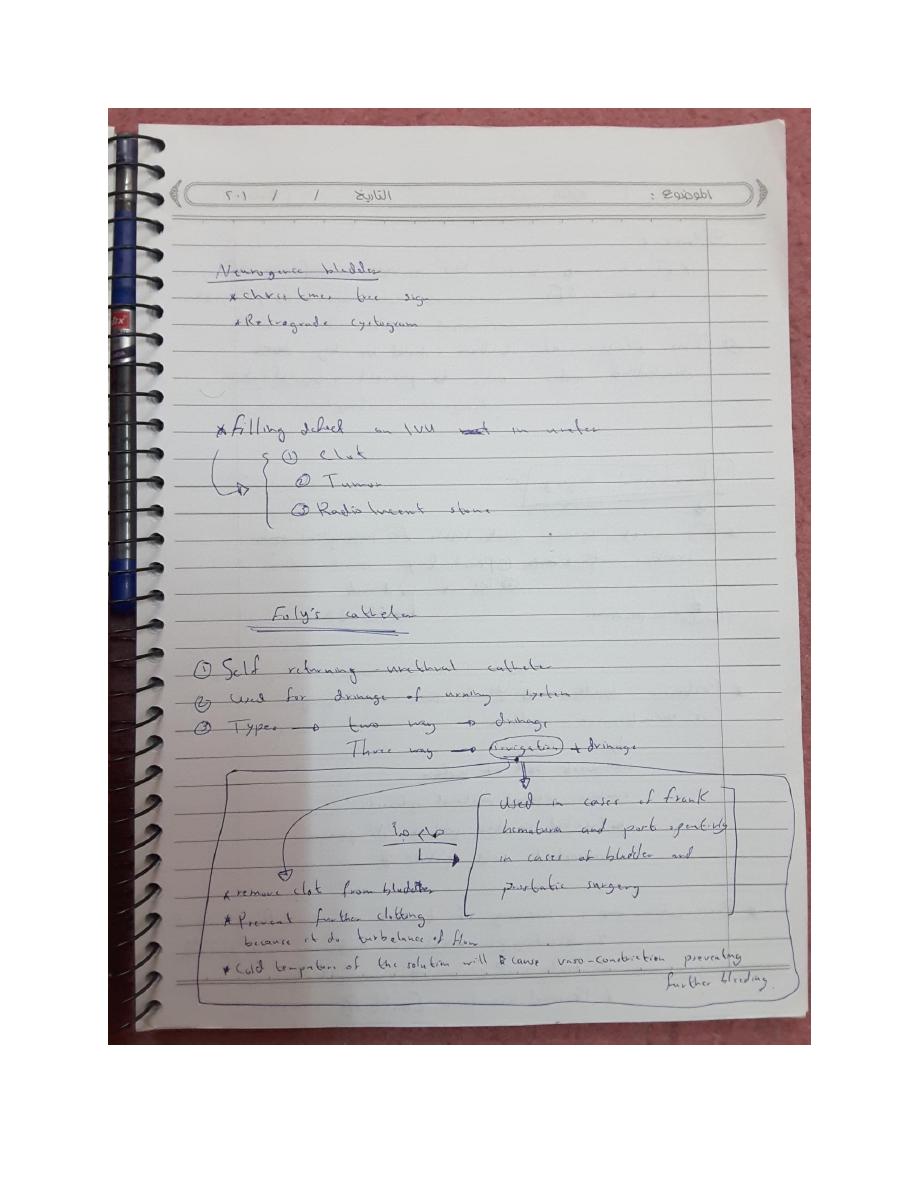 الموضوع :
التاريخ / / ٢٠١
Neurogenic bladder
* christmas tree sign
* Retrograde cystogram
* filling defect on IVU in ureter
① Clot
② Tumor
③ Radiolucent stone
Foly's catheter
① Self retaining urethral catheter
② Used for drinage of urinary system
③ Types → two way → drinage
Three way → irrigation + drinage
used in cases of frank
hematuria and post operativly
in cases of bladder and
prostatic surgery
هام جداً
* remove clot from bladder
* Prevent further clotting
because it do turbelance of flow
* Cold tempature of the solution will cause vaso-constriction preventing
further bleeding.